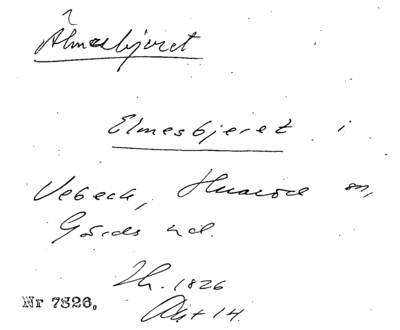 Älmesbjeret
Elmesbjeret i
Vebeck, Huaröd sn,
Gärds hd.
Zh. 1826
Akt 14.
Nr 7326.